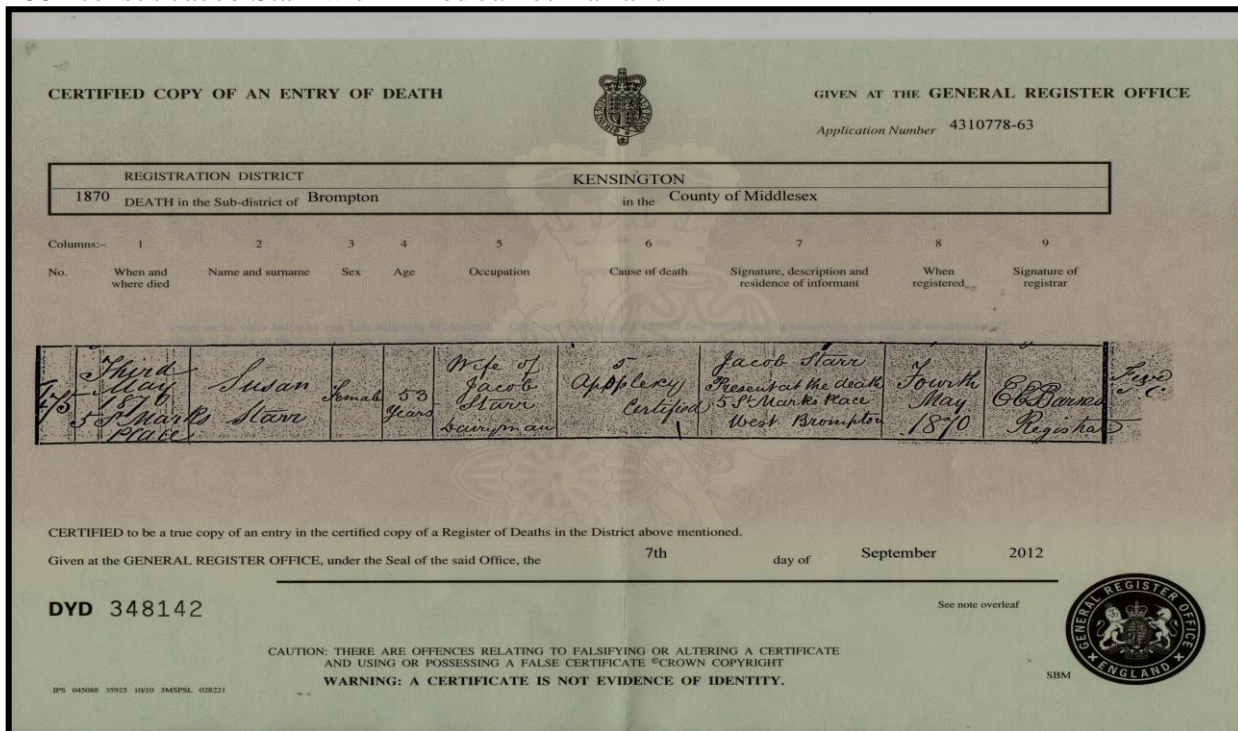 CERTIFIED COPY OF AN ENTRY OF DEATH
GIVEN AT THE GENERAL REGISTER OFFICE
Application Number 4310778-63
REGISTRATION DISTRICT KENSINGTON
1870 DEATH in the Sub-district of Brompton in the County of Middlesex
Columns:- 1 2 3 4 5 6 7 8 9
No. When and where died Name and surname Sex Age Occupation Cause of death Signature, description and residence of informant When registered Signature of registrar
475
Third
May
1870
5 St Marks
Place
Susan
Starr
Female
53
Years
Wife of
Jacob
Starr
Dairyman
5
Applexy
Certified
Jacob Starr
Present at the death
5 St Marks Place
West Brompton
Fourth
May
1870
Registrar
CERTIFIED to be a true copy of an entry in the certified copy of a Register of Deaths in the District above mentioned.
Given at the GENERAL REGISTER OFFICE, under the Seal of the said Office, the 7th day of September 2012
DYD 348142
See note overleaf
CAUTION: THERE ARE OFFENCES RELATING TO FALSIFYING OR ALTERING A CERTIFICATE
AND USING OR POSSESSING A FALSE CERTIFICATE ©CROWN COPYRIGHT
WARNING: A CERTIFICATE IS NOT EVIDENCE OF IDENTITY.
IPS 045088 35925 10/10 3MSPSL 028221
SBM
GENERAL REGISTER OFFICE
ENGLAND